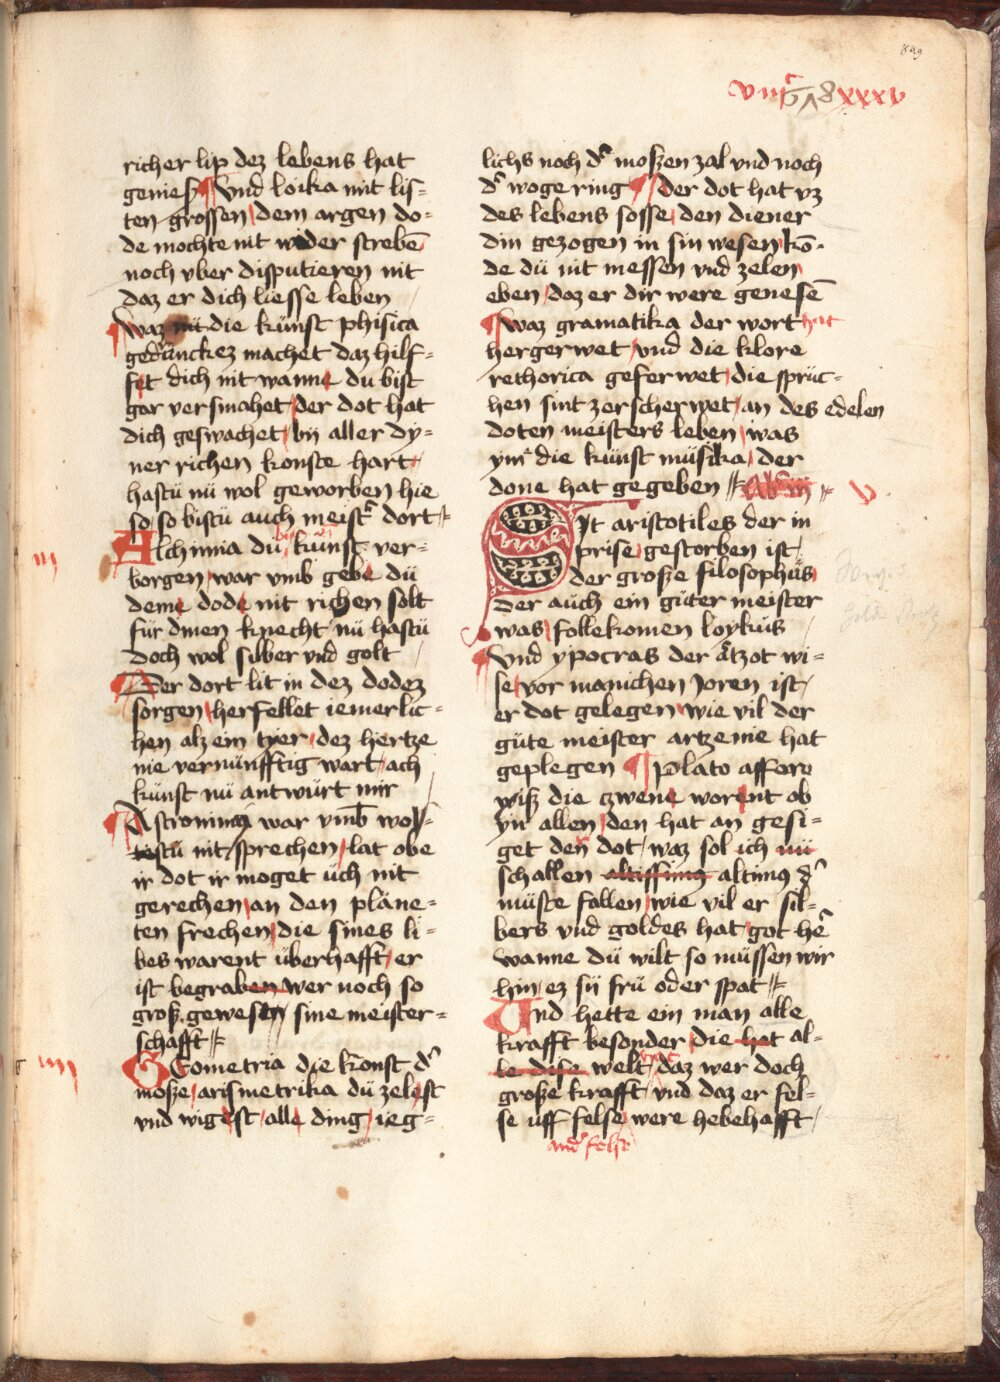 899
viijc xxxv
richer lip dez lebens hat
genieß Vnd loika mit lis-
ten grossen dem argen do-
de mochte nit wider strebē
noch vber disputieren nit
daz er dich liesse leben
waz die künst phisica
gedünckez machet daz hilf-
fet dich nit wanne du bist
gar versmahet der dot hat
dich geswachet bij aller dÿ-
ner richen konste hart
hastü nü wol geworben hie
so so bistü auch meistr dort
Alchimia dü künst ver-
borgen war vmb gebe dü
deme dode nit richen solt
für dinen knecht nü hastü
doch wol silber vnd golt
Der dort lit in dez dodez
sorgen herfellet iemerlic-
hen alz ein tyer dez hertze
nie vernünfftig wart ach
künst nü antwürt mir
Astronimij war vmb wol-
stü nit sprechen lat obe
ir dot ir moget üch nit
gerechen an den pläne-
ten frechen die sines li-
bes warent überhafft er
ist begraben wer noch so
groß gewesen sine meister-
schafft
iij
GEometria die konst dr
moße arismetrika dü zelest
vnd wigest alle ding ieg-
iiij
lichs noch dr moßen zal vnd noch
dr woge ring Der dot hat vz
des lebens sosse den diener
din gezogen in sin wesen kō-
de dü nit messen vnd zelen
eben daz er dir were genesē
waz gramatika der wort hat
hergerwet vnd die klore
rethorica geferwet die sprüc-
hen sint zerscherwet an des edelen
doten meisters leben was
ymr die künst müsika der
done hat gegeben
v
SIt aristotiles der in
prise gestorben ist
der große filosophüs
der auch ein güter meister
was follekomen loykus
Vnd ypocras der ätzot wi-
se vor manichen joren ist
er dot gelegen wie vil der
güte meister artzenie hat
geplegen Plato afforo
wiß die zwene worent ob
yn allen den hat an gesi-
get den dot waz sol ich nü
schallen altissimus altimus dr
müste fallen wie vil er sil-
bers vnd goldes hat got hē
wanne dü wilt so müssen wir
hin ez sij frü oder spat
Vnd hette ein man alle
krafft besonder die hat al-
le diser welt daz wer doch
große krafft vnd daz er fel-
se uff felse were hebehafft
andr felse